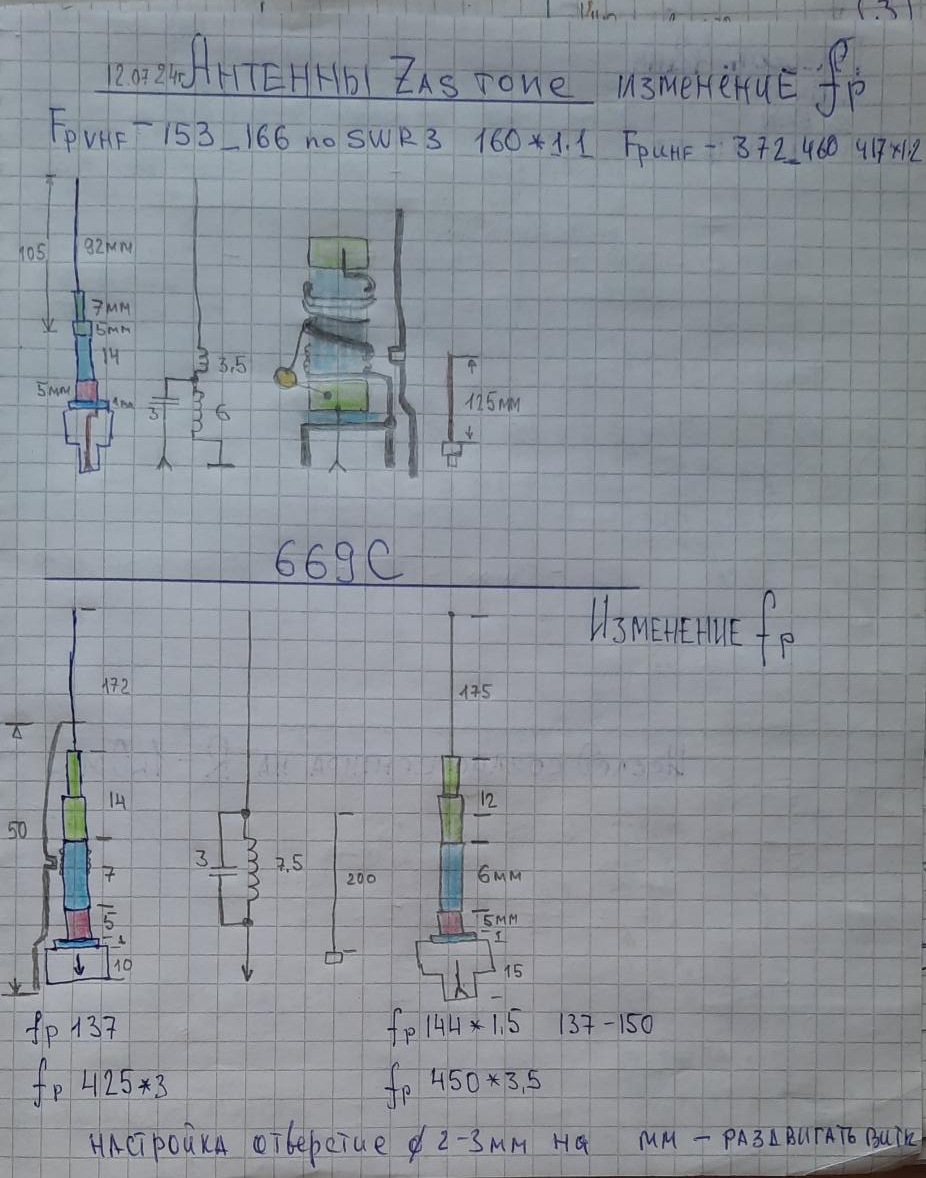 12.07.24г. Антенны Zastone изменение fp
FpVHF - 153_166 по SWR3 160*1.1 FpUHF - 372_460 417*1.2
105
92мм
7мм
5мм
14
5мм
3,5
3
6
125мм
669С
Изменение fp
172
14
50
7
5
1
10
3
7,5
200
175
12
6мм
5мм
1
15
fp 137
fp 144*1,5 137-150
fp 425*3
fp 450*3,5
настройка отверстие ⌀ 2-3мм на мм - раздвигать витк